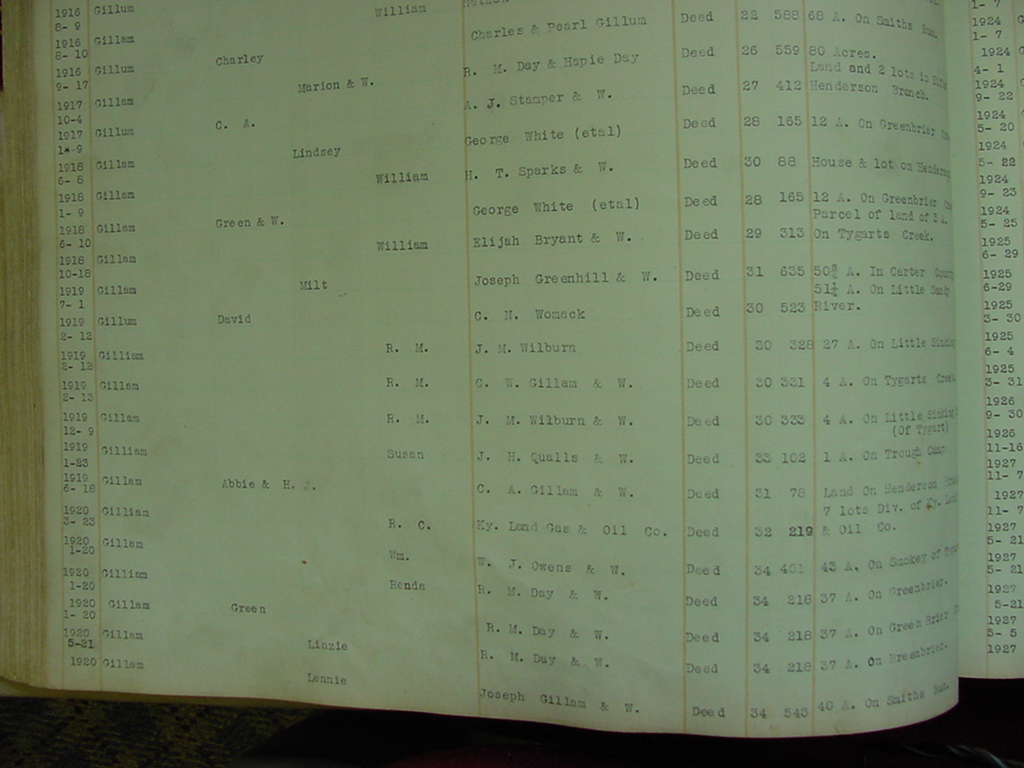 1916 Gillum William Charles & Pearl Gillum Deed 22 588 68 A. On Smiths Run.
8- 9
1916 Gillam Charley R. M. Day & Hapie Day Deed 26 559 80 Acres.
8- 10
1916 Gillum Marion & W. A. J. Stamper & W. Deed 27 412 Land and 2 lots in
9- 17 Henderson Branch.
1917 Gillam C. A. George White (etal) Deed 28 165 12 A. On Greenbrier
10-4
1917 Gillum Lindsey H. T. Sparks & W. Deed 30 88 House & lot on
1- 9
1918 Gillam William George White (etal) Deed 28 165 12 A. On Greenbrier
6- 8
1918 Gillam Green & W. Elijah Bryant & W. Deed 29 313 Parcel of land of 3 A.
1- 9 On Tygarts Creek.
1918 Gillam William Joseph Greenhill & W. Deed 31 635 50¾ A. In Carter
6- 10
1918 Gillam Milt C. N. Womack Deed 30 523 51¼ A. On Little Sandy
10-18 River.
1919 Gillam David J. M. Wilburn Deed 30 328 27 A. On Little
7- 1
1919 Gillum R. M. C. W. Gillam & W. Deed 30 331 4 A. On Tygarts Creek
2- 12
1919 Gilliam R. M. J. M. Wilburn & W. Deed 30 333 4 A. On Little
2- 12 (Of Tygart)
1919 Gillam R. M. J. H. Qualls & W. Deed 33 102 1 A. On Trough Camp
2- 13
1919 Gillam Susan C. A. Gillam & W. Deed 31 78 Land On Henderson
12- 9
1919 Gilliam Abbie & H. J. Ky. Land Gas & Oil Co. Deed 32 219 7 lots Div. of Ky. Land
1-23 & Oil Co.
1919 Gillam R. C. W. J. Owens & W. Deed 34 401 43 A. On Smokey of
6- 18
1920 Gilliam Wm. R. M. Day & W. Deed 34 218 37 A. On Greenbrier.
3- 23
1920 Gillam Renda R. M. Day & W. Deed 34 218 37 A. On Green Brier
1-20
1920 Gilliam Green R. M. Day & W. Deed 34 218 37 A. On Breenbrier.
1-20
1920 Gillam Linzie Joseph Gillam & W. Deed 34 543 40 A. On Smiths Run.
1- 20
1920 Gillam Lennie
5-21
1920 Gillam
1- 7
1924
1- 7
1924
4- 1
1924
9- 22
1924
5- 20
1924
5- 22
1924
9- 23
1924
5- 25
1925
6- 29
1925
6-29
1925
3- 30
1925
6- 4
1925
3- 31
1926
9- 30
1926
11-16
1927
11- 7
1927
11- 7
1927
5- 21
1927
5- 21
1927
5-21
1927
5- 5
1927